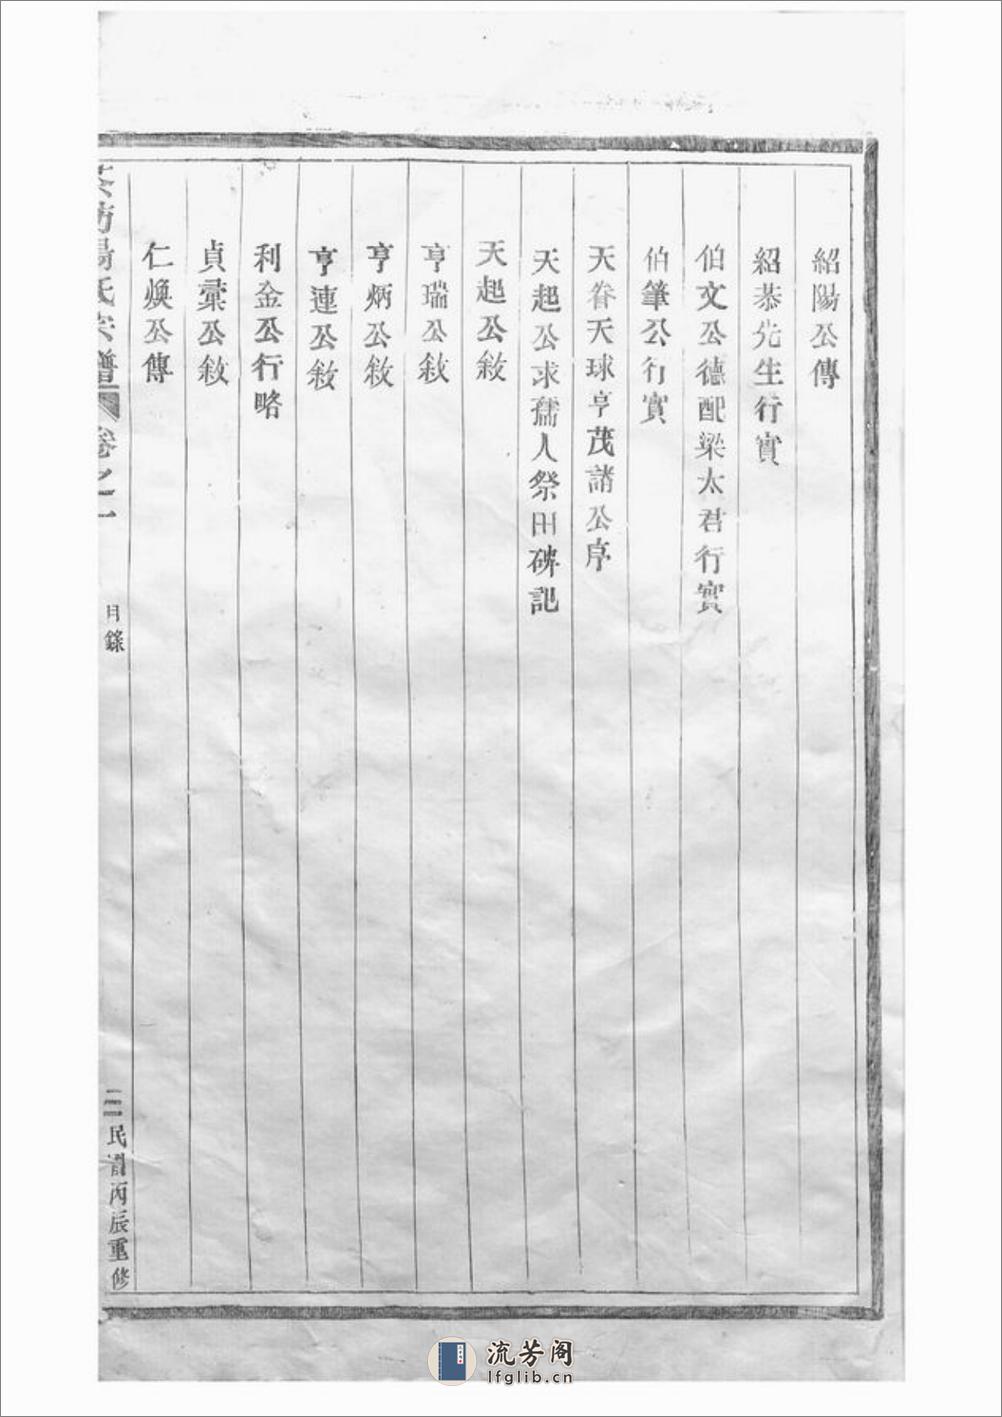 紹陽公傳
紹恭先生行實
伯文公德配梁太君行實
伯筆公行實
天眷天球亨茂諸公序
天起公求孺人祭田碑記
天起公敘
亨瑞公敘
亨炳公敘
亨連公敘
利金公行略
貞彙公敘
仁煥公傳
氏宗譜 卷之二
目錄
三 民國丙辰重修
流芳阁
lfglib.cn